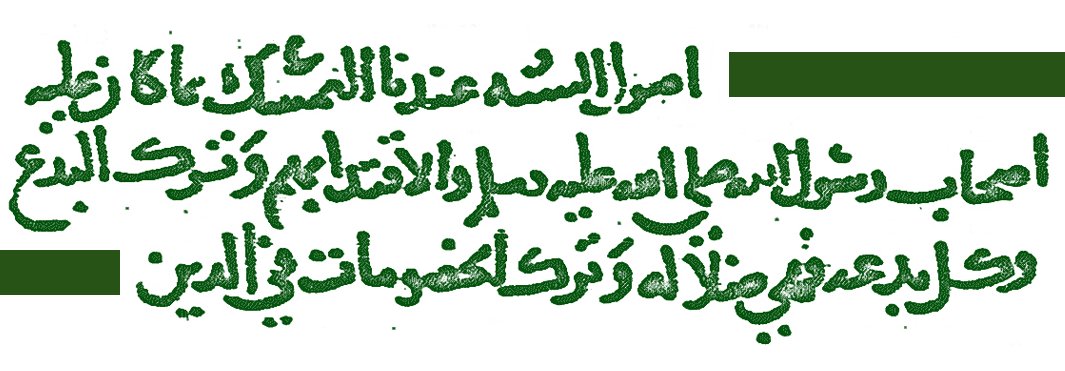 اصول السنة عندنا التمسك بما كان عليه
اصحاب رسول الله صلى الله عليه وسلم والاقتدا بهم وترك البدع
وكل بدعة فهي ضلالة وترك الخصومات في الدين